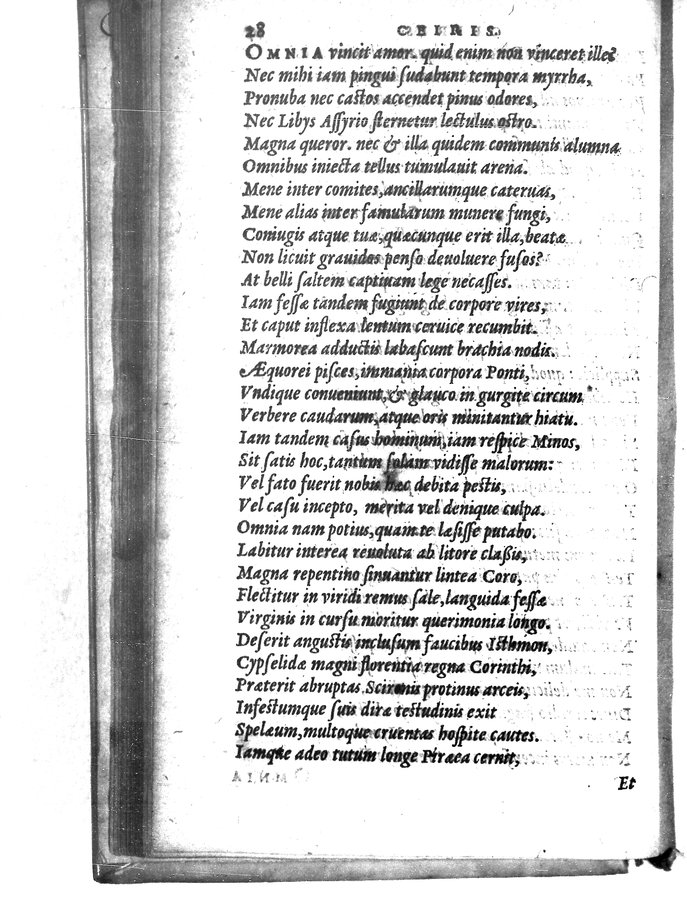 28 CEIRIS.
OMNIA vincit amor. quid enim non vinceret ille?
Nec mihi iam pingui ſudabunt tempora myrrha,
Pronuba nec caſtos accendet pinus odores,
Nec Libys Aſſyrio ſternetur lectulus oſtro.
Magna queror. nec & illa quidem communis alumna
Omnibus iniecta tellus tumulauit arena.
Mene inter comites, ancillarumque cateruas,
Mene alias inter famularum munere fungi,
Coniugis atque tuæ, quæcunque erit illa, beatæ
Non licuit grauidos penſo deuoluere fuſos?
At belli ſaltem captiuam lege necaſſes.
Iam feſſæ tandem fugiunt de corpore vires,
Et caput inflexa lentum ceruice recumbit.
Marmorea adductis labaſcunt brachia nodis.
Æquorei piſces, immania corpora Ponti,
Vndique conueniunt, & glauco in gurgite circum
Verbere caudarum, atque oris minitantur hiatu.
Iam tandem caſus hominum, iam reſpice Minos,
Sit ſatis hoc, tantum ſolam vidiſſe malorum:
Vel fato fuerit nobis hæc debita peſtis,
Vel caſu incepto, merita vel denique culpa.
Omnia nam potius, quam te læſiſſe putabo.
Labitur interea reuoluta ab litore claßis,
Magna repentino ſinuantur lintea Coro,
Flectitur in viridi remus ſale, languida feſſæ
Virginis in curſu moritur querimonia longo.
Deſerit anguſtis incluſum faucibus Iſthmon,
Cypſelidæ magni florentia regna Corinthi,
Præterit abruptas Scironis protinus arceis,
Infeſtumque ſuis diræ teſtudinis exit
Spelæum, multoque cruentas hoſpite cautes.
Iamque adeo tutum longe Piræea cernit,
Et